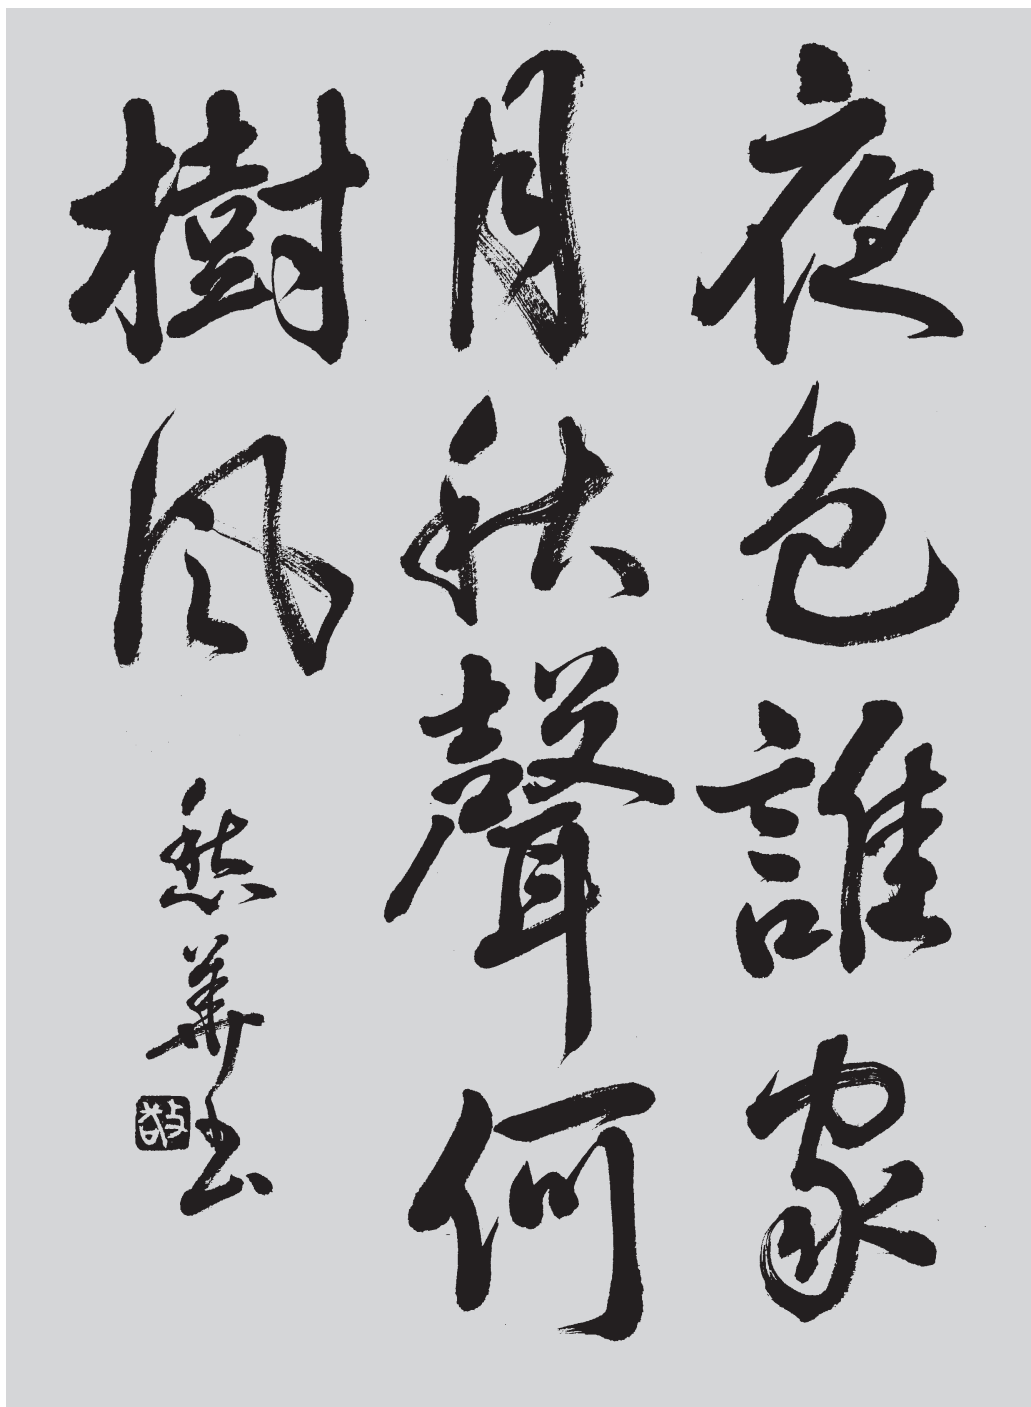 夜色誰家
月秋聲何
樹風
愁華书